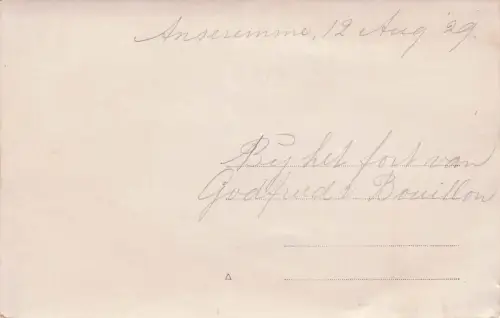 Anseremme, 12 Aug '29.
Bij het fort van
Godfried v Bouillon